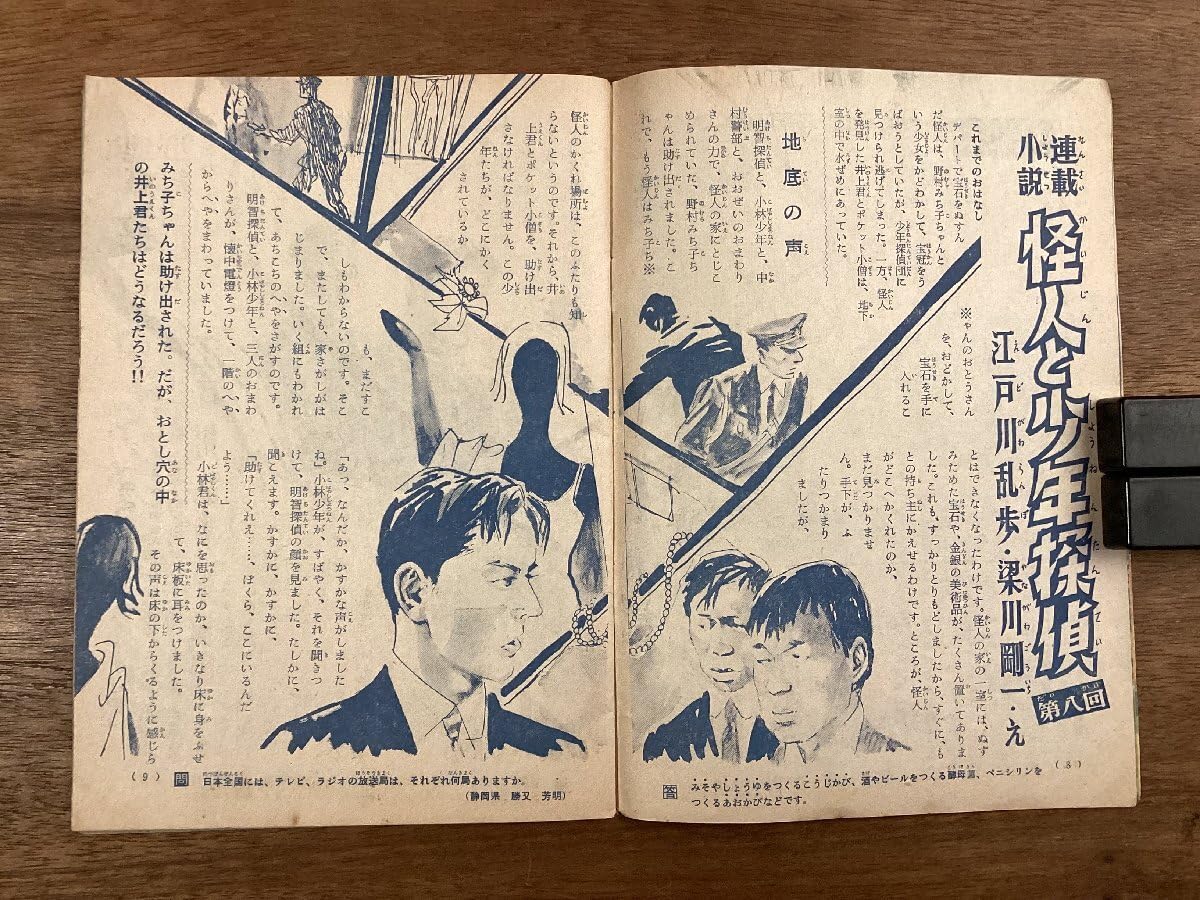 連載
小説
怪人と少年探偵
第八回
江戸川乱歩・梁川剛一・え
これまでのおはなし
デパートで宝石をぬすん
だ怪人は、野村みち子ちゃんと
いう少女をかどわかして、宝冠をう
ばおうとしていたが、少年探偵団に
見つけられ逃げてしまった。一方、怪人
を発見した井上君とポケット小僧は、地下
室の中で水ぜめにあっていた。
地底の声
明智探偵と、小林少年と、中
村警部と、おおぜいのおまわり
さんの力で、怪人の家にとじこ
められていた、野村みち子ち
ゃんは助け出されました。こ
れで、もう怪人はみち子ち※
※ゃんのおとうさん
を、おどかして、
宝石を手に
入れるこ
とはできなくなったわけです。怪人の家の一室には、ぬす
みためた宝石や、金銀の美術品が、たくさん置いてありま
した。これも、すっかりとりもどしましたから、すぐに、も
との持ち主にかえせるわけです。ところが、怪人
がどこへかくれたのか、
まだ見つかりませ
ん。手下が、ふ
たりつかまり
ましたが、
(8)
答 みそやしょうゆをつくるこうじかび、酒やビールをつくる酵母菌、ペニシリンを
つくるあおかびなどです。
怪人のかくれ場所は、このふたりも知
らないというのです。それから、井
上君とポケット小僧を、助け出
さなければなりません。この少
年たちが、どこにかく
されているか
も、まだすこ
しもわからないのです。そこ
で、またしても、家さがしがは
じまりました。いく組にもわかれ
て、あちこちのへやをさがすのです。
明智探偵と、小林少年と、三人のおまわ
りさんが、懐中電燈をつけて、一階のへや
からへやをまわっていました。
「あっ、なんだか、かすかな声がしました
ね。」小林少年が、すばやく、それを聞きつ
けて、明智探偵の顔を見ました。たしかに、
聞こえます。かすかに、かすかに、
「助けてくれえ……、ぼくら、ここにいるんだ
よう……」
小林君は、なにを思ったのか、いきなり床に身をふせ
て、床板に耳をつけました。
その声は床の下からくるように感じら
みち子ちゃんは助け出された。だが、おとし穴の中
の井上君たちはどうなるだろう!!
(9)
問 日本全国には、テレビ、ラジオの放送局は、それぞれ何局ありますか。
(静岡県 勝又 芳明)